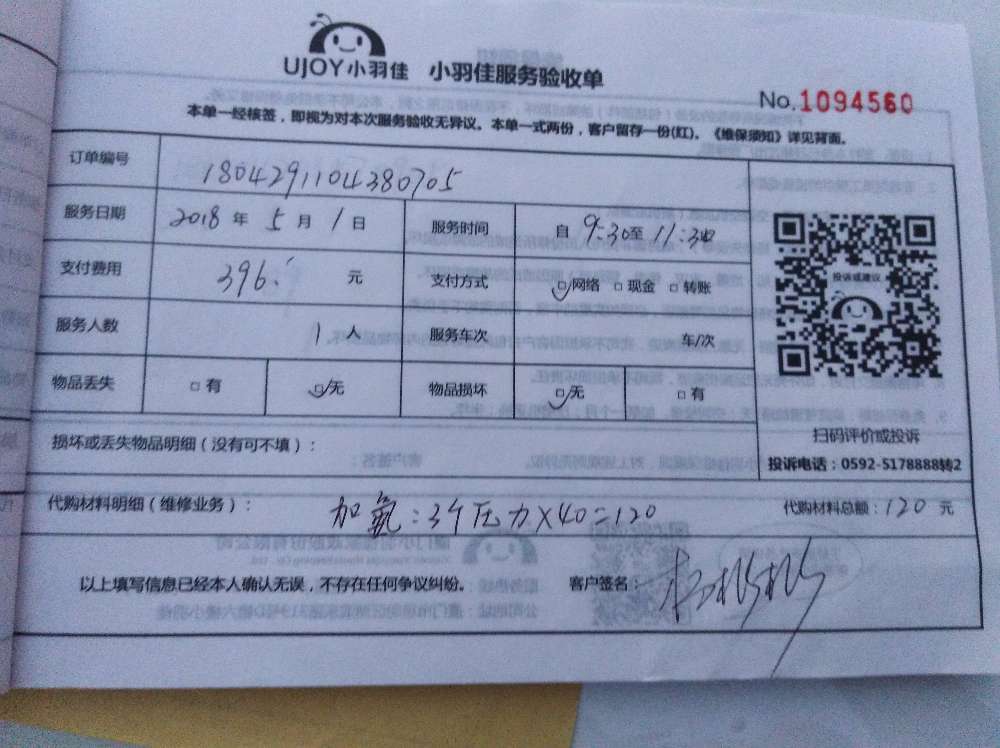 UJOY小羽佳 小羽佳服务验收单
No.1094560
本单一经核签，即视为对本次服务验收无异议。本单一式两份，客户留存一份(红)。《维保须知》详见背面。
订单编号 1804291104380705
服务日期 2018 年 5 月 1 日 服务时间 自 9:30 至 11:30
支付费用 396 元 支付方式 网络 现金 转账
投诉或建议
服务人数 1 人 服务车次 车/次
物品丢失 有 无 物品损坏 无 有
扫码评价或投诉
损坏或丢失物品明细（没有可不填）：
投诉电话：0592-5178888转2
代购材料明细（维修业务）： 加氟：3个压力×40=120 代购材料总额：120 元
以上填写信息已经本人确认无误，不存在任何争议纠纷。 客户签名：